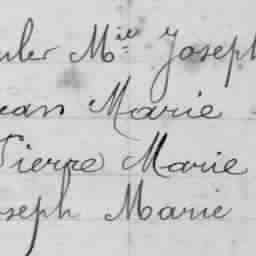 Mie Joseph
Jean Marie
Pierre Marie
Joseph Marie